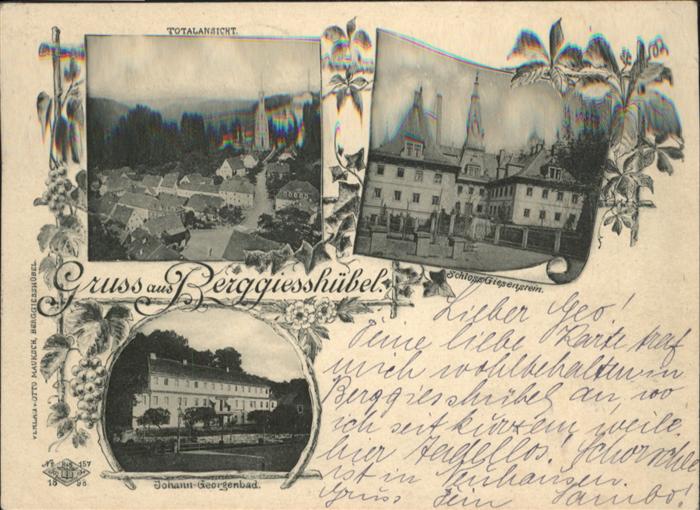 TOTALANSICHT.
Schloss Giesenstein.
Gruss aus Berggiesshübel.
VERLAG v. OTTO MAUKSCH, BERGGIESSHÜBEL.
Johann-Georgenbad.
157
18 98
Lieber Geo!
Deine liebe Karte traf
mich wohlbehalten in
Berggiesshübel an, wo
ich seit kurzem weile.
hier Tadellos! Schorschel
ist in Neuhausen.
Gruss Dein Sambo!